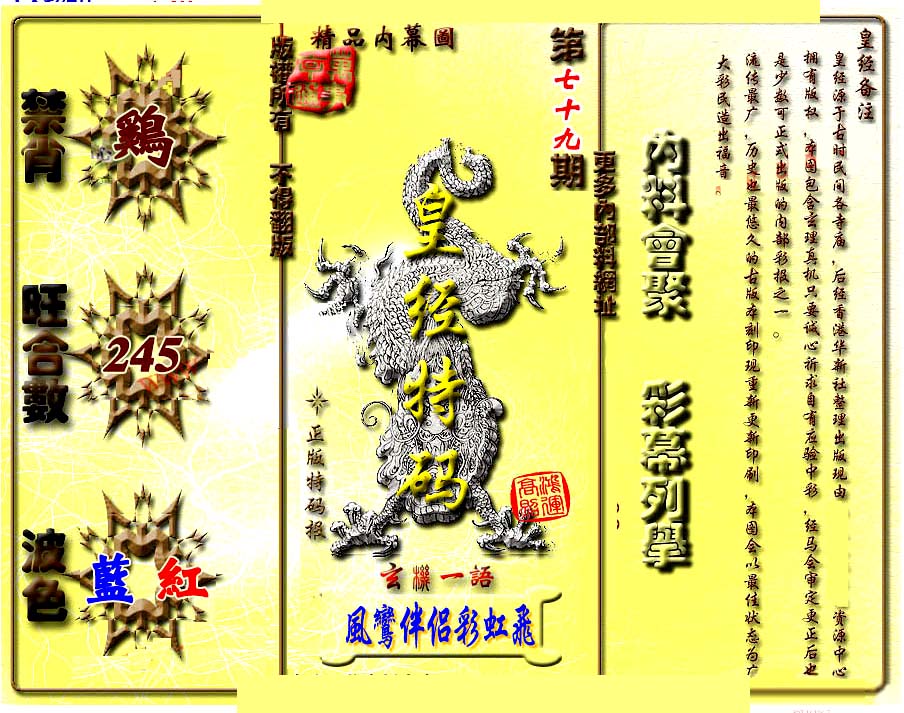 皇经备注
皇经源于古时民间各寺庙，后经香港华新社整理出版现由资源中心
拥有版权，本图包含玄理真机只要诚心祈求自有应验中彩，经马会审定更正后也
是少数可正式出版的内部彩报之一。
流传最广，历史也最悠久的古版本刻印现重新更新印刷，本图会以最佳状态为广
大彩民造出福音。
内料會聚 彩幕列舉
更多內部料網址
第七十九期
精品内幕圖
皇经特码
鴻運高照
正版特码报
玄機一語
風鸞伴侣彩虹飛
版權所有 不得翻版
禁肖
鷄
旺合數
245
波色
藍 紅